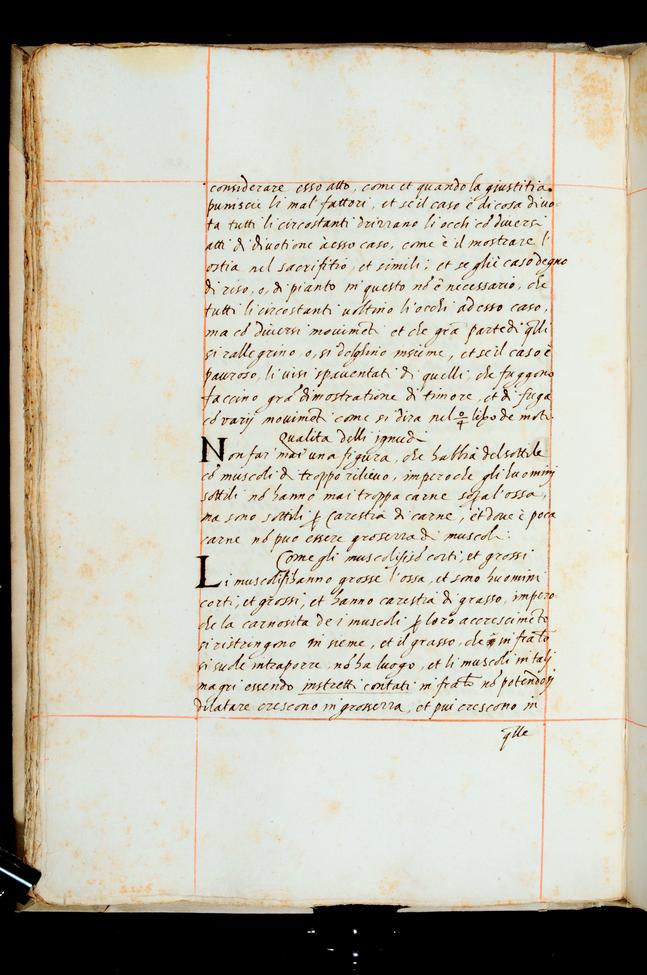 considerare esso atto, come et quando la giustitia
punisce li mal fattori, et se il caso è di cosa divo-
ta tutti li circostanti drizzano li occhi cō diversi
atti di divotione a esso caso, come è il mostrare l'
ostia nel sacrifitio, et simili; et se gliè caso degno
di riso, o, di pianto in questo nō è necessario, che
tutti li circostanti voltino li occhi ad esso caso,
ma cō diversi movimēti et che grā parte di q̄lli
si rallegrino, o, si dolghino insieme, et se il caso è
pauroso, li visi spaventati di quelli, che fuggono
faccino grā dimostratione di timore, et di fuga
cō varij movimēti come si dira nel 4º libro de moti
Qualita delli ignudi
Non far mai una figura, che habbia del sottile
cō muscoli di troppo rilievo, imperoche gli huomini
sottili nō hanno mai troppa carne sopa l'ossa,
ma sono sottili p̲ carestia di carne, et dove è poca
carne nō puo essere grosserza di muscoli.
Come gli muscoli sō corti, et grossi
Li muscolosi hanno grosse l'ossa, et sono huomini
corti, et grossi, et hanno carestia di grasso, impero-
che la carnosita de i muscoli p̲ loro accrescimēto
si ristringono insieme, et il grasso, che infra loro
si suole intraporre, nō ha luogo, et li muscoli in tali
magri essendo instretti contati infra loro nō potendosi
dilatare crescono in grosserza, et piu crescono in
q̄lle